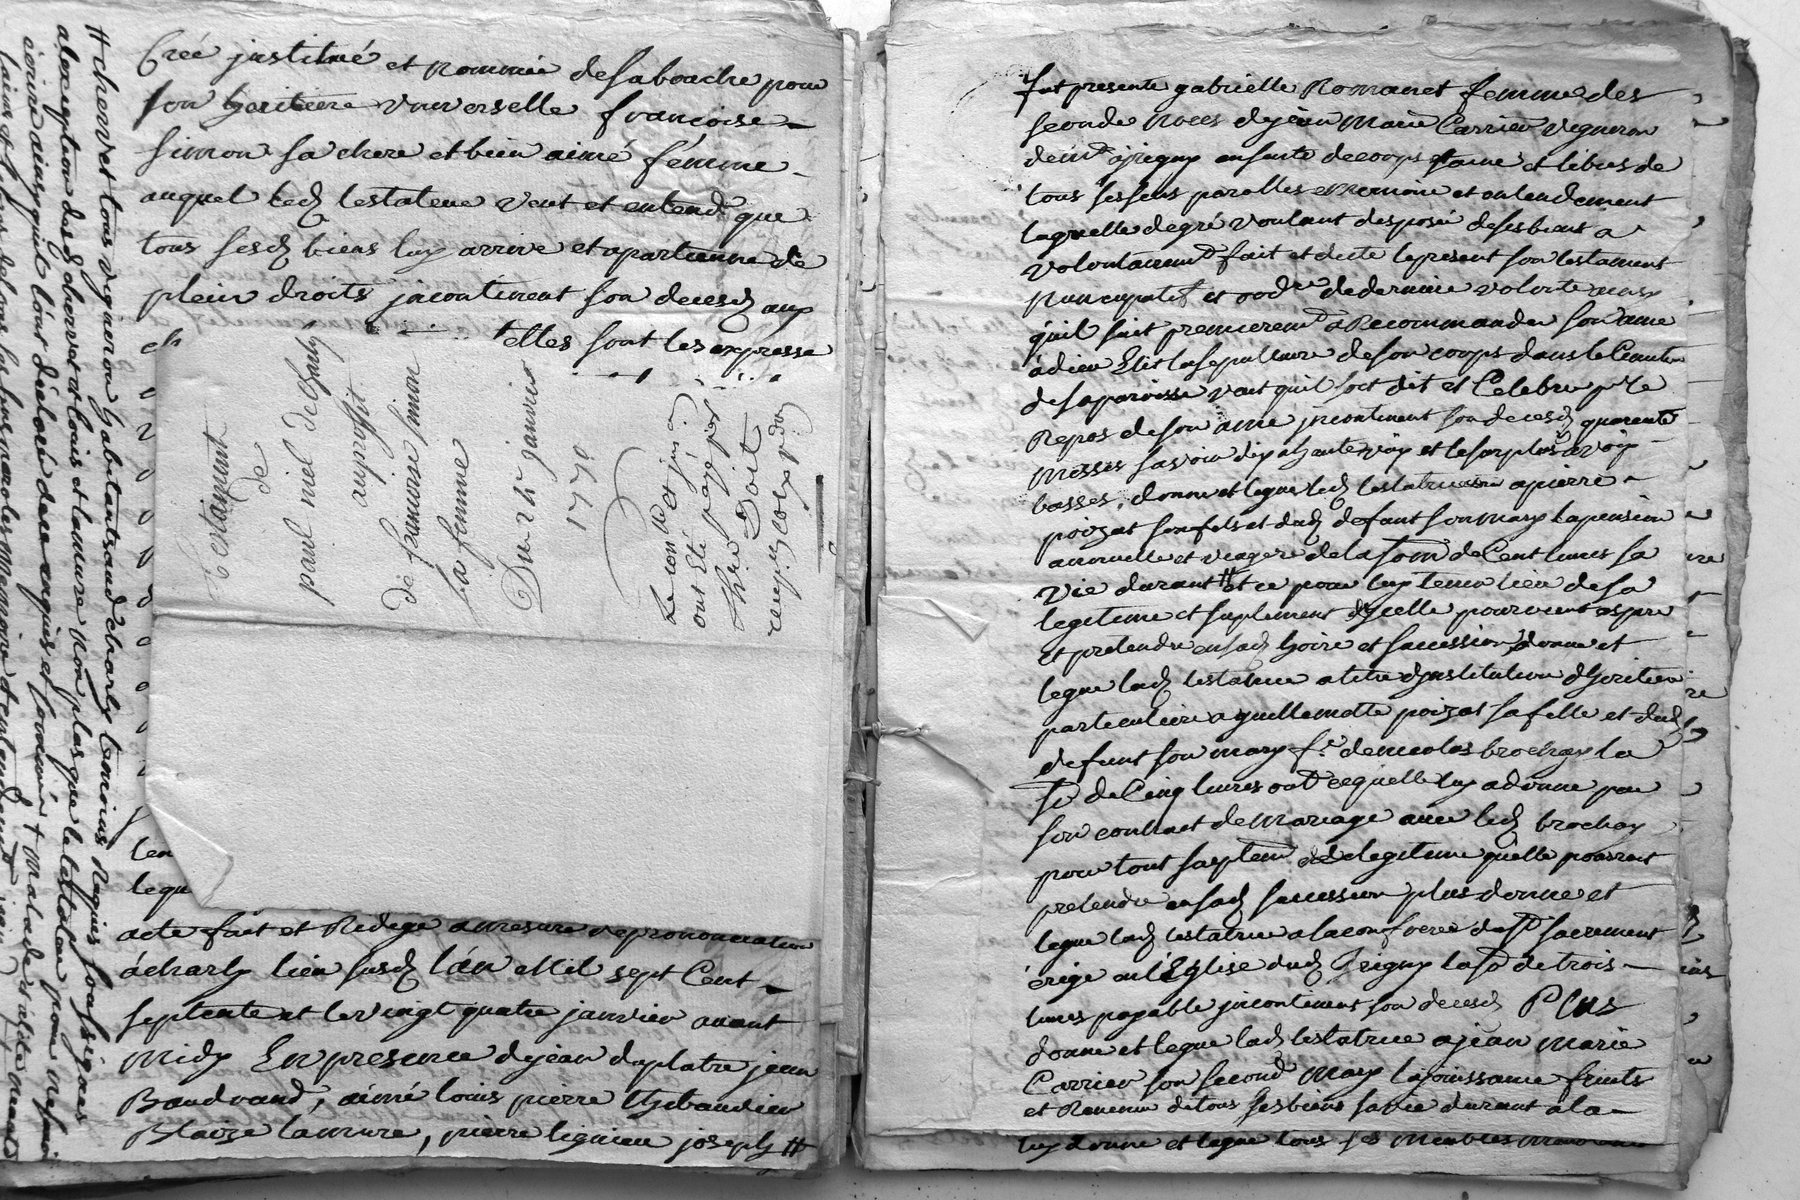 Créé jnstitué et nommée de sa bouche pour
son heritiere universelle francoise
simon sa chere et bien aimé fémme
auquel led testateur veut et entend que
tous sesd biens luy arrive et apartienne de
plein droits jncontinent son decesd aux
telles sont les expresse
Testament
de
paul niel de Charly
au proffit
de francoise simon
sa femme
Du 24e janvier
1770
ont été payé par
Doit
acte fait et Redigé a mesure de prononciation
à charly lieu susd l'an Mil sept Cent
septente et le vingt quatre janvier avant
Midy En presence de jean duplatre jean
Baudrand, aimé louis pierre thibaudier
Blaize lamure, pierre lignieu joseph #
# chervet tous vigneron habitants aud charly temoins Requis soussignés
a l'exception desd chervet et louis et lamure Non plus que le testateur pour ne sçavoir
écrire ainsy qu'il l'ont déclaré de ce enquis et sommés + malade d'alité neant
sains et libres de tous ses sens parolles Memoire et entendement
fut presente gabrielle Romanet femme des
seconde noces de jean Marie Carrier vigneron
dem.t à jrigny en suite de corps saine et libres de
tous ses sens parolles et memoire et entendement
laquelle de gré voulant disposé de ses biens a
volontairem.t fait et dicté le present son testament
nuncupatif et ord.re de derniere volonté aux
qu'il suit premierem.t a Recommandé son ame
à dieu Elit la sepulture de son corps dans le Cimetier
de sa paroisse veut qu'il soit dit et Celebré p.r le
Repos de son ame jncontinent son decesd quarente
Messes savoir dix à haute voix et le surplus a voix
basses, donne et legue lad testatrice a pierre
poizat son fils et dud defunt son mary la pension
annuelle et viagere de la som.e de Cent livres sa
vie durant # et ce pour luy tenir lieu de sa
legitime et suplement d'jcelle pouvant esperé
et pretendre en sad hoirie et succession donne et
legue lad testatrice a titre d'jnstitution d'heritiere
particuliere a guillemette poizat sa fille et dud
defunt son mary f.e de nicolas brochay la
so.e de Cinq livres outre ce quelle luy a donné par
son contract de Mariage avec led brochay
pour tout suplem.t de legitime qu'elle pourroit
pretendre en sad succession plus donne et
legue lad testatrice a la confrerie du s.t sacrement
érigé en l'Eglise dud jrigny la so.e de trois
livres payable jncontinent son decesd Plus
donne et legue lad testatrice a jean Marie
Carrier son second Mary la jouissance fruits
et Revenu de tous ses biens sa vie durant a la
luy donne et legue tous ses Meubles